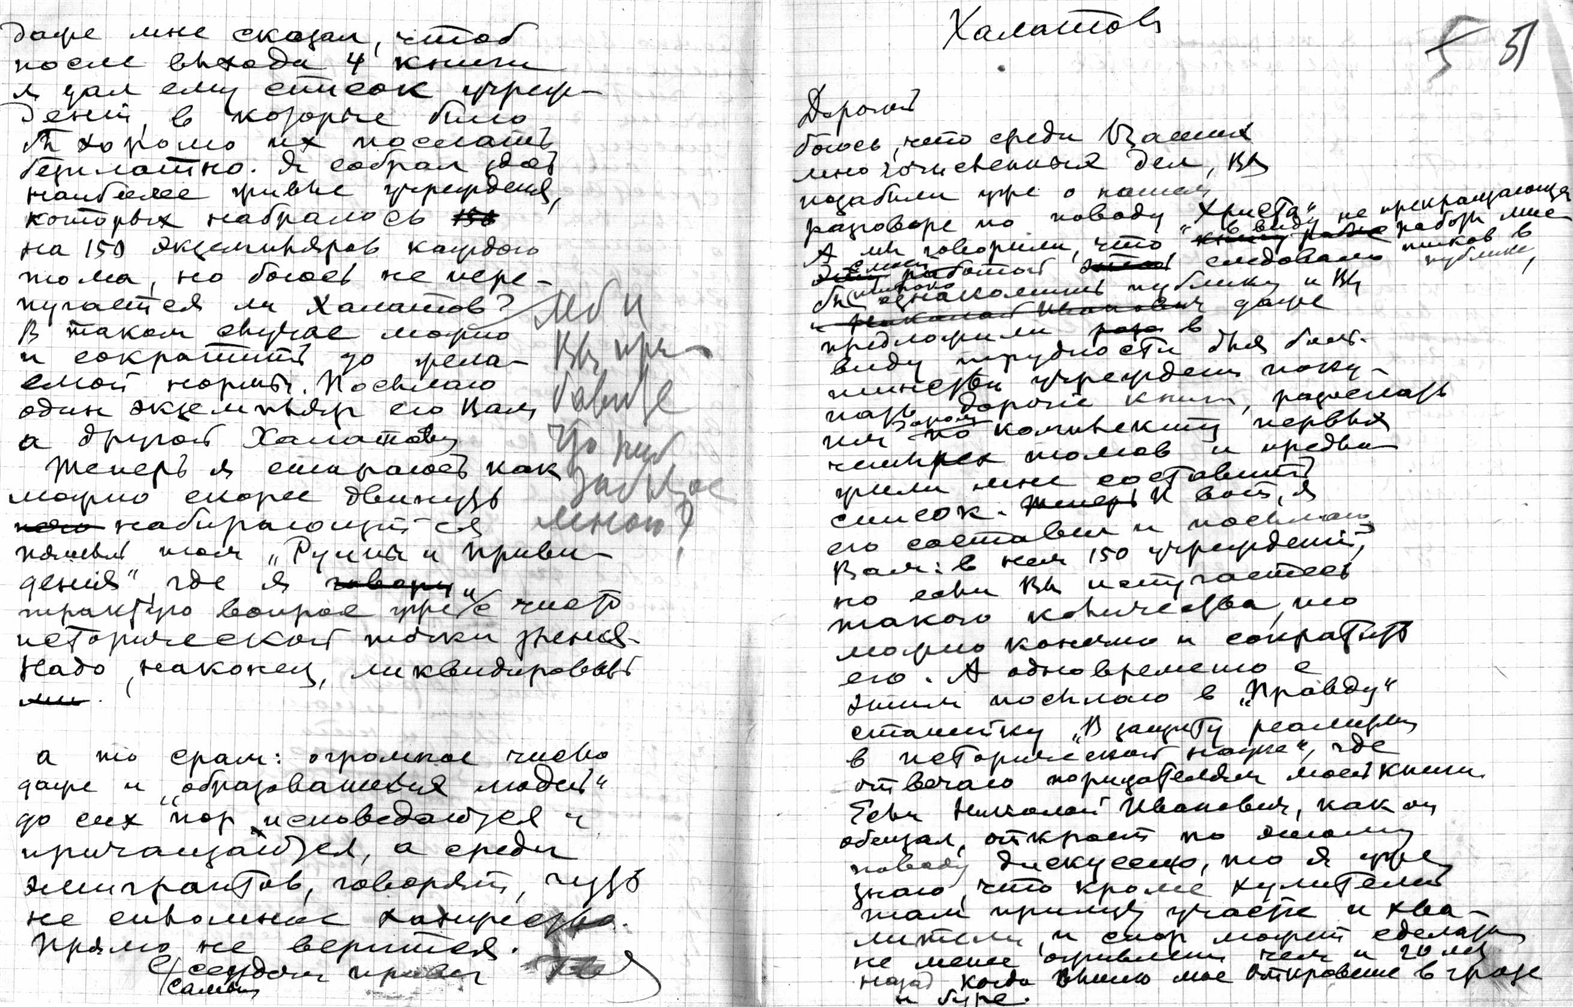 даже мне сказал, чтоб
после выхода 4 книги
я дал ему список учреж-
дений, в которые было
б хорошо их послать
безплатно. Я собрал
наиболее живые учреждения,
которых набралось 150
на 150 экземпляров каждого
тома, но боюсь не пере-
пугается ли Халатов?
В таком случае можно
и сократить до жела-
емой нормы. Посылаю
один экземпляр его Вам
а другой Халатову
Теперь я стараюсь как
можно скорее двинуть
набирающийся
том „Руины и Приви-
дения“, где я говорю
трактую вопрос уже с чисто
исторической точки зрения.
Надо, наконец, ликвидировать
а то срам: огромное число
даже и „образованных людей“
до сих пор исповедается и
причащается, а среди
эмигрантов, говорят, чуть
не сплошное ханжество.
Прямо не верится.
Сердечный привет
самый
Вы при-
бавите
что ниб
забытое
мною?
Халатов
5 51
Дорогой
боюсь, что среди Ваших
многочисленных дел, Вы
позабыли уже о нашем
разговоре по поводу „Христа“
А мы говорили, что в виду не прекращающихся
с моей работой следовало
б широко ознакомить публику и Вы
Николай Иванович даже
предложили в
виду трудности для боль-
шинства учреждений поку-
пать дорогие книги, разослать
им даром по комплекту первых
четырех томов и предло-
жили мне составить
список. Теперь И вот, я
его составил и посылаю
Вам: в нем 150 учреждений,
но если Вы испугаетесь
такого количества, то
можно конечно и сократить
его. А одновременно с
этим посылаю в „Правду“
статейку „В защиту реализма
в исторической науке“, где
отвечаю порицателям моей книги.
Если Николай Иванович, как он
обещал, откроет по этому
поводу дискуссию, то я уже
знаю, что кроме хулителей
там примут участие и хва-
лители, и спор может сделать
не менее оживлен чем и годы
назад когда вышло мое Откровение в грозе
и буре.